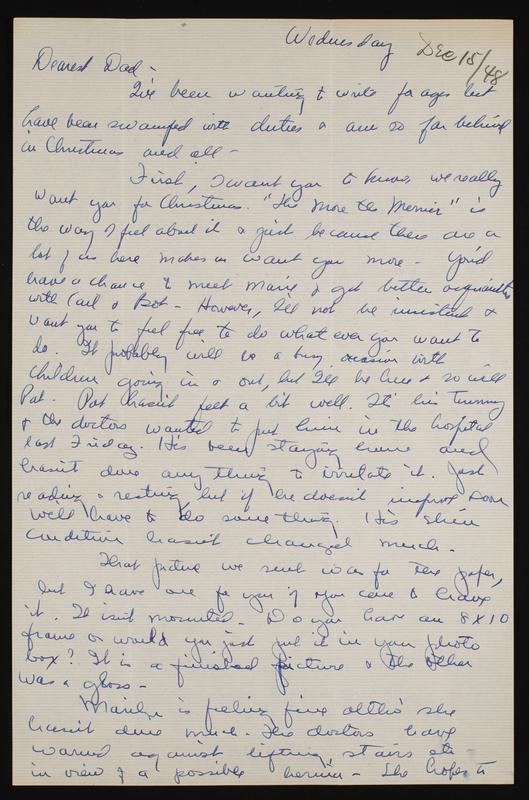 Wednesday Dec 15/48
Dearest Dad -
I've been wanting to write for ages but
have been swamped with duties & am so far behind
in Christmas and all -
First, I want you to know we really
want you for Christmas. "The More the Merrier" is
the way I feel about it & just because there are a
lot of us here makes us want you more - You'd
have a chance to meet Marie & get better acquainted
with Carl & Bob - However, I'll not be insistent &
want you to feel free to do what ever you want to
do. It probably will be a busy occasion with
children going in & out, but I'll be here & so will
Pat. Pat hasn't felt a bit well. It's his tummy
& the doctors wanted to put him in the hospital
last Friday. He's been staying home and
hasn't done any thing to irritate it. Just
reading & resting, but if he doesn't improve soon
we'll have to do some thing. His skin
condition hasn't changed much.
That picture we sent was for the paper,
but I have one for you if you care to have
it. It isn't mounted. Do you have an 8X10
frame or would you just put it in your photo
box? It is a finished picture & the other
was a gloss -
Marilyn is feeling fine altho' she
hasn't done much. The doctors have
warned against lifting, stairs etc
in view of a possible hernia - She hopes to